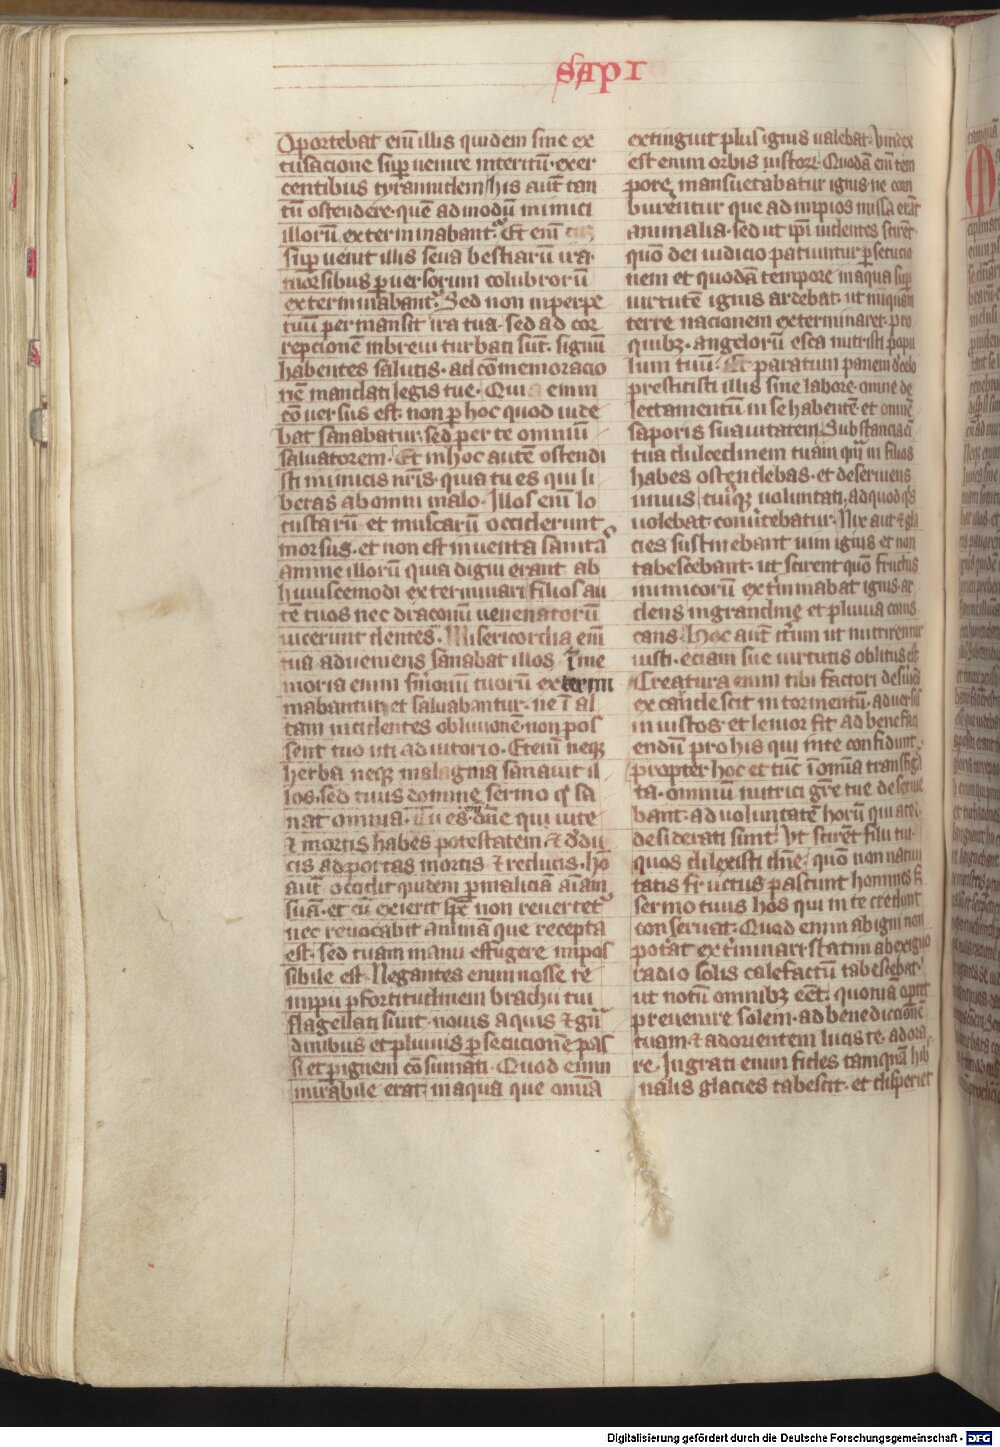 SAPI
Oportebat eni᷑ illis quidem sine ex
cusacione sup̱uenire interitū·exer
centibus tyrannidem/his aut᷑ tan
tū ostendere·quē admodū inimici
illorū exterminabant᷑· Et eni᷑
sup̱uenit illis seua bestiarū ira·
morsibus ꝑuersorum colubrorū
exterminabant᷑· Sed non inperpe
tuū permansit ira tua· sed ad cor
repcionē inbreui turbati sūt· signū
habentes salutis· ad cōmemoracio
nē mandati legis tue· Qui enim
cōuersus est· non ꝑ hoc quod uide
bat sanabatur·sed per te omniū
saluatorem· Et inhoc autē ostendi
sti inimicis nr̄is· quia tu es qui li
beras abomni malo· Illos eni᷑ lo
custarū et muscarū occiderunt
morsus· et non est inuenta sanitas
anime illorū quia digni erant ab
huiuscemodi exterminari filios au
tē tuos nec draconū uenenatorū
uicerunt dentes· Misericordia eni᷑
tua adueniens sanabat illos Ī me
moria enim s̄monū tuorū extermi
nabantur· et saluabantur· ne ī al
tam incidentes obliuionē·non pos
sent tuo uti adiutorio· Eteni᷑ neqꝫ
herba neqꝫ malagma sanauit il
los·sed tuus domine sermo q̇ sa
nat omnia· Tu es eni᷑ dn̄e qui uite
⁊ mortis habes potestatem ⁊ d̄du
cis adportas mortis ⁊ reducis· ho
aut᷑ occidit quidem ꝑmaliciā aīam
suā· et cū exierit sp̄c non reuertet᷑
nec reuocabit animā que recepta
est· sed tuam manu effugere impos
sibile est· Negantes enim nosse te
impii ꝑfortitudinem brachii tui
flagellati sunt· nouis aquis ⁊ g̈ni
dinibus et pluuiis ꝑsecucionē pas
si et ꝑ ignem cōsumati· Quod enim
mirabile erat· inaqua que omnia
extinguit plus ignis ualebat· Vindex
est enim orbis iustorꝝ· Quodā eni᷑ tem
pore mansuetabatur ignis· ne com
burentur que ad impios missa erāt
animalia· sed ut ip̄i uidentes scirēt·
quō dei iudicio patiuntur ꝑsecucio
nem et quodā tempore inaqua sup̱
uirtutē ignis ardebat· ut iniquam
terre nacionem exterminaret· pro
quibꝫ· angelorū esca nutristi popu
lum tuū· Et paratum panem d̓celo
prestitisti illis sine labore· omne de
lectamentū in se habentē· et omnē
saporis suauitatem· Substanciā eni᷑
tua dulcedinem tuam qua̅ in filios
habes ostendebas· et deseruiens
uniuscuiusqꝫ uoluntati· adquod q̇s
uolebat· conu̅tebatur· Nix aut᷑ ⁊ gla
cies sustinebant uim ignis et non
tabescebant· ut scirent quō fructus
inimicorū ext̄minabat ignis· ar
dens ingrandine et pluuia corus
cans· Hoc aut᷑ it̄um ut nutrirentur
iusti· eciam sue uirtutis oblitus est·
Creatura enim tibi factori deseruiēs
ex candescit in tormentū· aduersus
iniustos· et lenior fit ad benefaci
endū pro his qui inte confidunt·
propter hoc et tūc ī omnia transfigu
rata· omniū nutrici gr̄e tue deseruie
bant· aduoluntatē horū qui ate·
desiderati sunt Vt scirēt filii tui·
quos dilexisti dn̄e· quō non natiui
tatis fructus pascunt homines s̄
sermo tuus hos qui in te credunt
conseruat· Quod enim abigni non
potāt ext̄minari· statim abexiguo
radio solis calefactū tabescebat·
ut notū omnibꝫ eēt· quoniā oportet
preuenire solem· ad benediccionē
tuam· ⁊ adorientem lucis te adora
re· Ingrati enim fides tamquā hib
nalis glacies tabescit· et disperiet
Digitalisierung gefördert durch die Deutsche Forschungsgemeinschaft - DFG